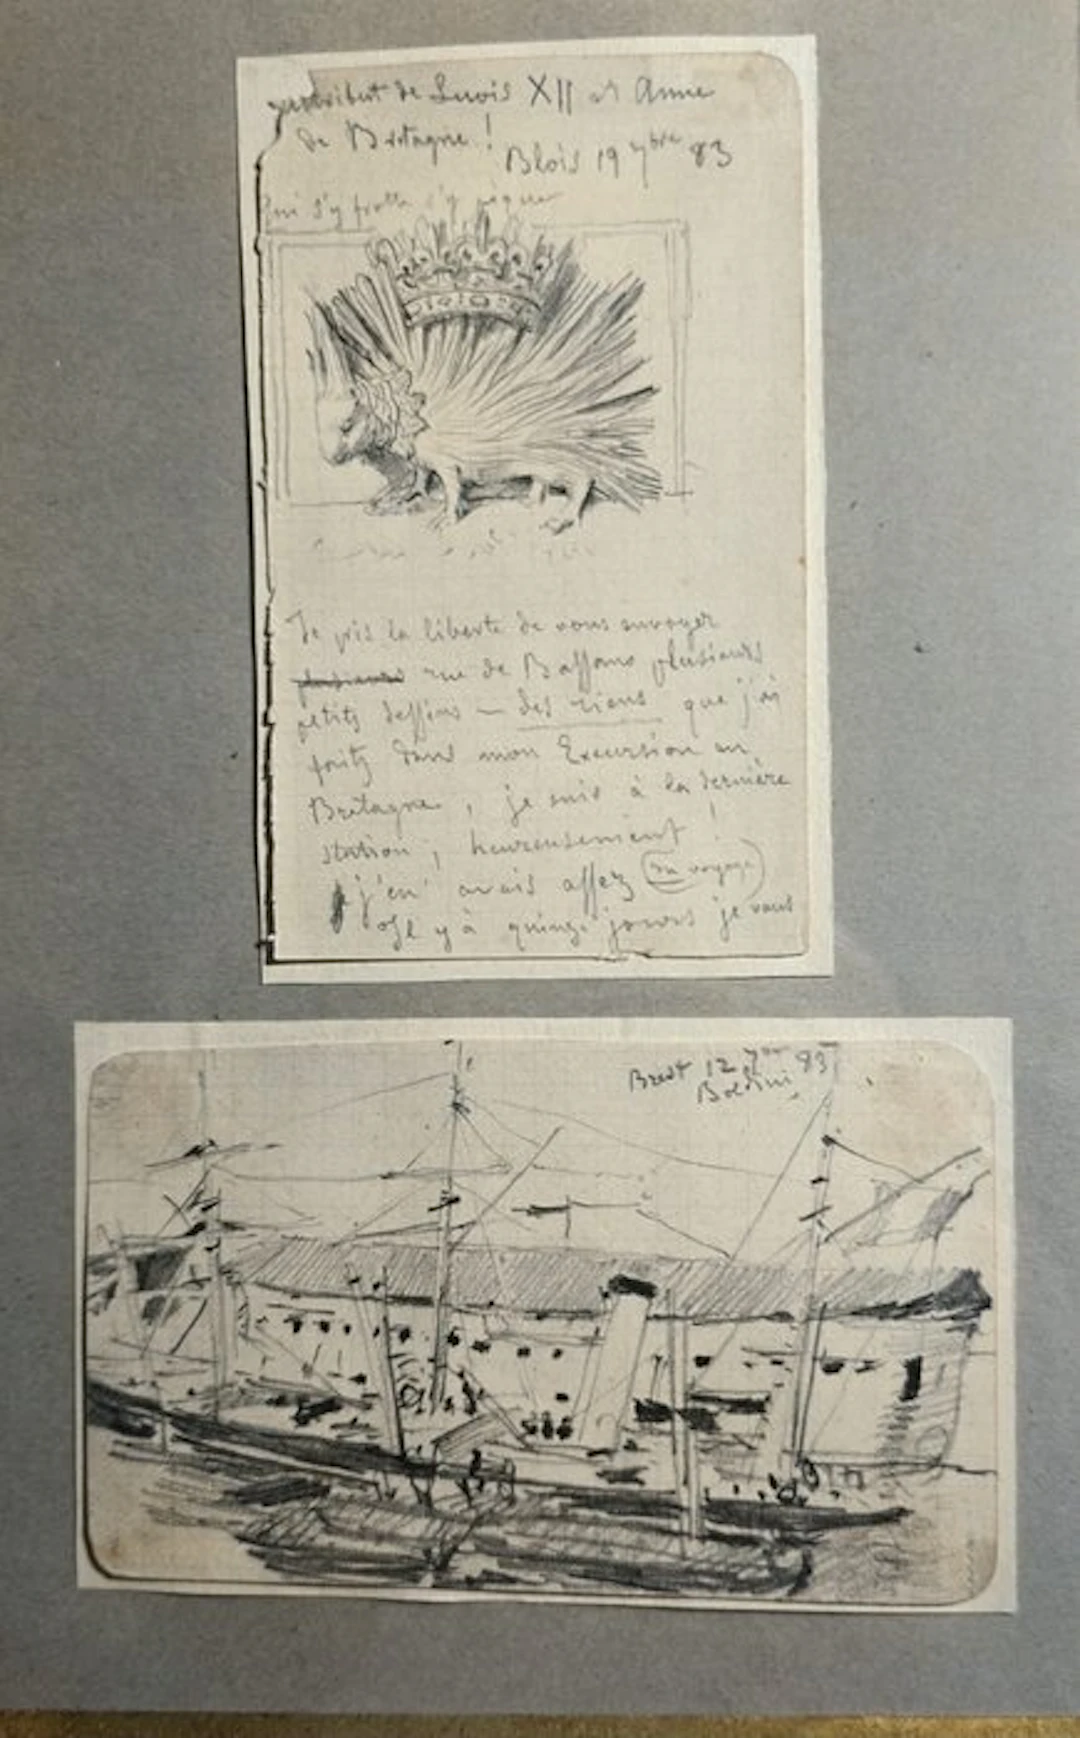 attribut de Louis XII et Anne
de Bretagne !
Blois 19 7bre 83
Qui s'y frotte s'y pique
Je pris la liberté de vous envoyer
plusieurs rue de Bassano plusieurs
petits dessins — des riens que j'ai
faits dans mon Excursion en
Bretagne, je suis à la dernière
station, heureusement !
j'en avais assez (du voyage)
y à quinze jours je vous
Brest 12 7bre 83
Boldini